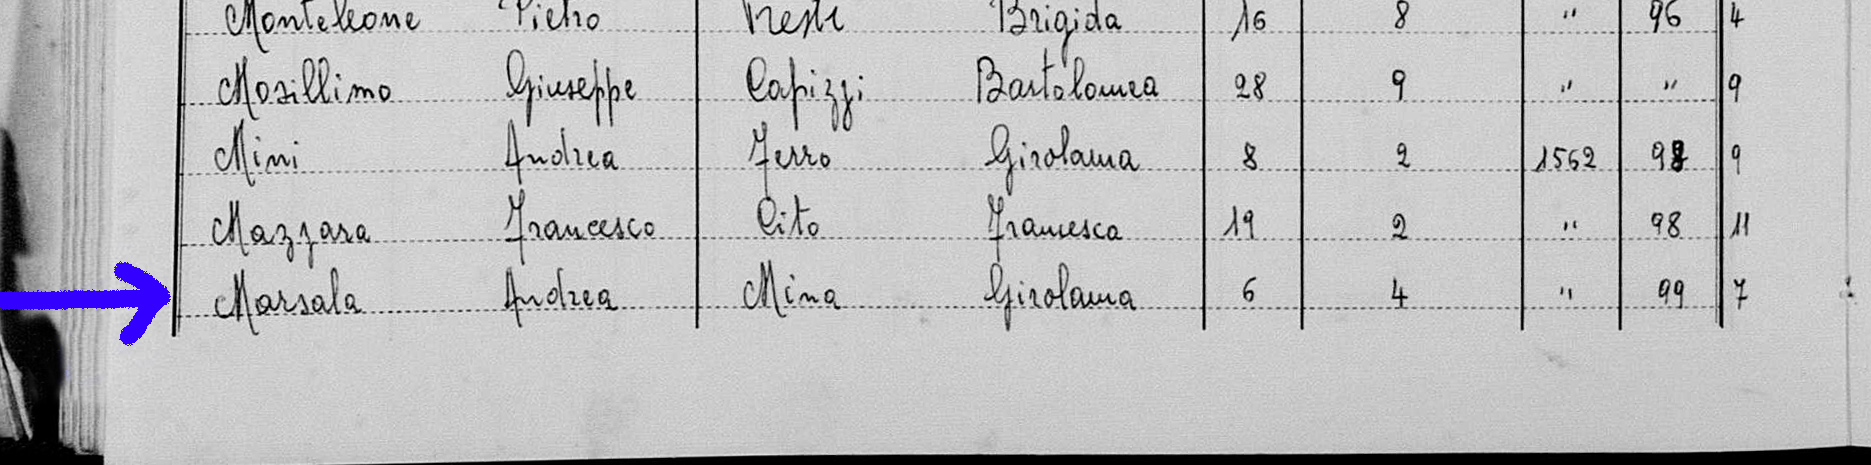 Monteleone Pietro Resti Brigida 16 8 " 96 4
Mosillimo Giuseppe Capizzi Bartolomea 28 9 " " 9
Mini Andrea Ferro Girolama 8 2 1562 98 9
Mazzara Francesco Cito Francesca 19 2 " 98 11
Marsala Andrea Mina Girolama 6 4 " 99 7